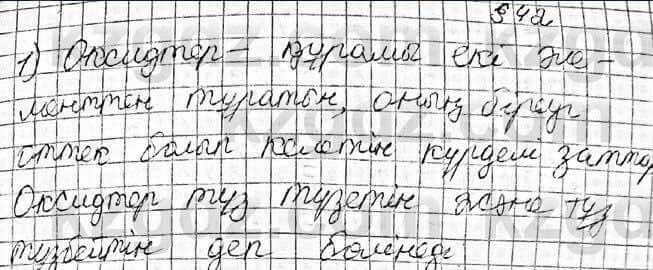 §42
1) Оксидтар – құрамы екі эле-
менттен тұратын, оның біреуі
оттек болып келетін күрделі заттар
Оксидтар тұз түзетін және тұз
түзбейтін деп бөлінеді